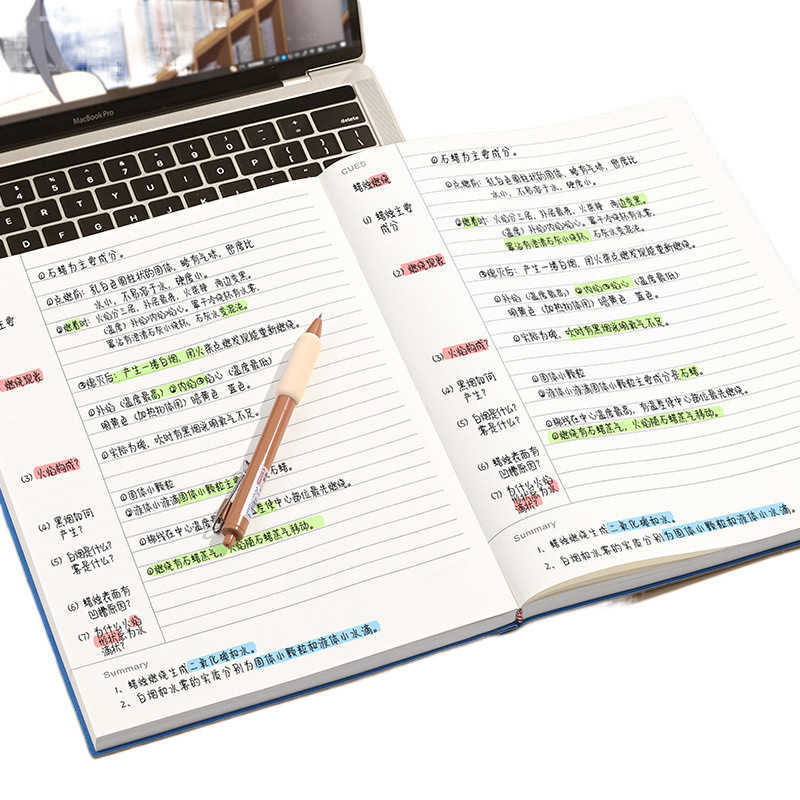 MacBook Pro
delete
主要
燃烧现象
(3) 火焰构成?
(4) 黑烟如何
产生?
(5) 白烟是什么?
雾是什么?
(6) 蜡烛表面有
凹槽原因?
(7) 为什么火焰
形状后为水
滴状?
①石蜡为主要成分。
①点燃前: 乳白色圆柱状的固体, 略有气味, 密度比
水小, 不易溶于水, 硬度小。
②燃着时: 火焰分三层, 外层最亮, 火柴梗 两边变黑。
(温度) 外焰内焰焰心。罩干冷烧杯有水雾,
罩沾有澄清石灰小烧杯, 石灰水变混浊。
③熄灭后: 产生一缕白烟, 闭火柴点燃发现能重新燃烧。
①外焰 (温度最高) ②内焰③焰心 (温度最低)
明黄色 (加热物体用) 暗黄色 蓝色。
①实际为碳, 吹时有黑烟说明氧气不足。
①固体小颗粒
②液体小液滴固体小颗粒主要
石蜡。
①棉线在中心温度
差使中心部位最先燃烧。
①燃烧有石蜡蒸气, 火焰随石蜡蒸气移动。
Summary
1、蜡烛燃烧生成二氧化碳和水。
2、白烟和水雾的实质分别为固体小颗粒和液体小水滴。
CUES
蜡烛燃烧
(1) 蜡烛主要
成分
(2) 燃烧现象
(3) 火焰构成?
(4) 黑烟如何
产生?
(5) 白烟是什么?
雾是什么?
(6) 蜡烛表面有
凹槽原因?
(7) 为什么火焰
形状后为水
滴状?
①石蜡为主要成分。
①点燃前: 乳白色圆柱状的固体, 略有气味, 密度比
水小, 不易溶于水, 硬度小。
②燃着时: 火焰分三层, 外层最亮, 火柴梗 两边变黑。
(温度) 外焰内焰焰心。罩干冷烧杯有水雾,
罩沾有澄清石灰小烧杯, 石灰水变混浊。
③熄灭后: 产生一缕白烟, 闭火柴点燃发现能重新燃烧。
①外焰 (温度最高) ②内焰③焰心 (温度最低)
明黄色 (加热物体用) 暗黄色 蓝色。
①实际为碳, 吹时有黑烟说明氧气不足。
①固体小颗粒
②液体小液滴固体小颗粒主要成分是石蜡。
①棉线在中心温度最高, 有温差使中心部位最先燃烧。
①燃烧有石蜡蒸气, 火焰随石蜡蒸气移动。
Summary
1、蜡烛燃烧生成二氧化碳和水。
2、白烟和水雾的实质分别为固体小颗粒和液体小水滴。